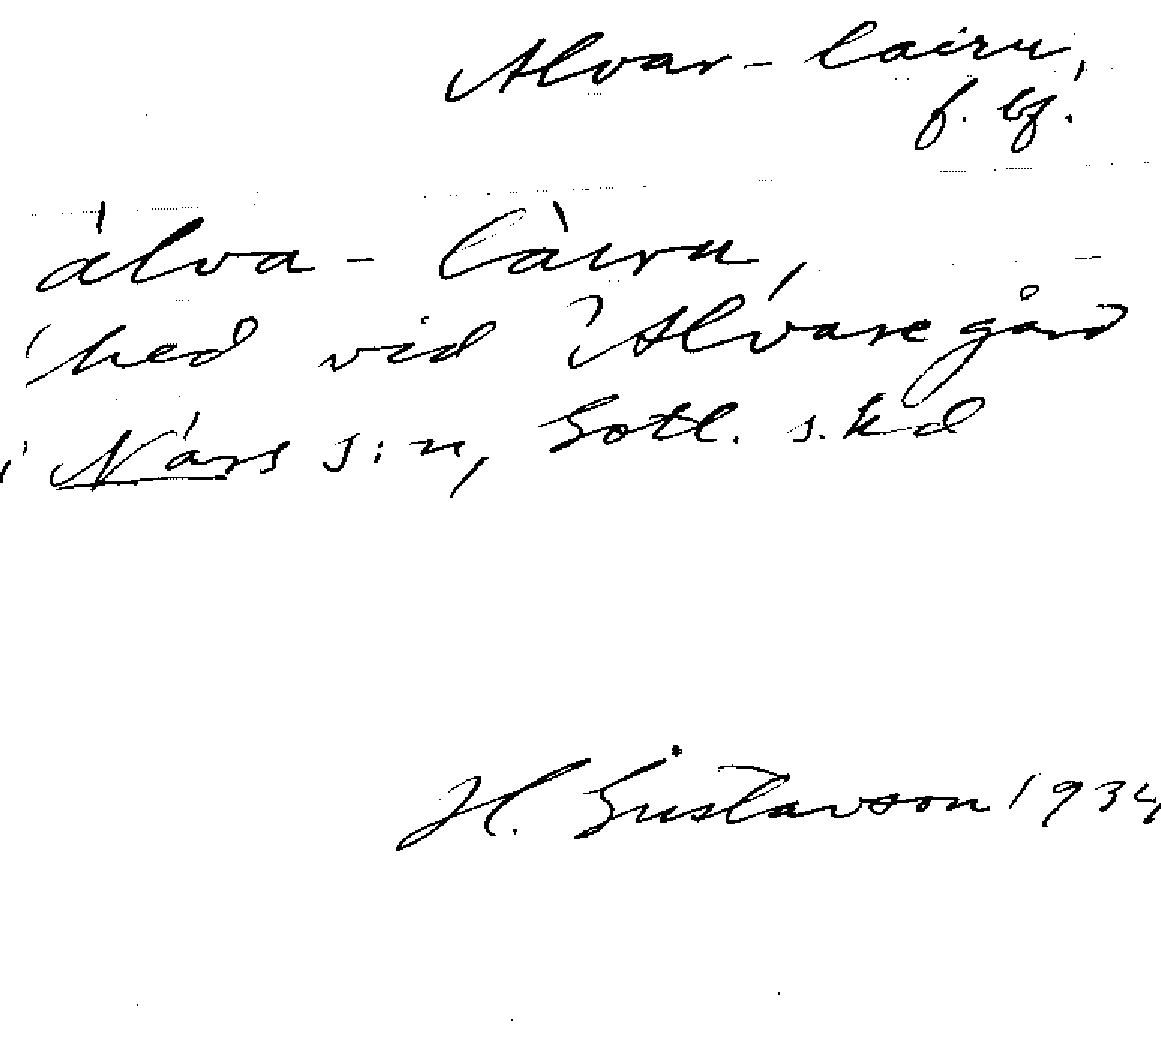 Alvar-lairu,
f. bf.
álva - làiru,
'hed vid Alvare gård
i Närs s:n, Gotl. s. hd
H. Gustavson 1934